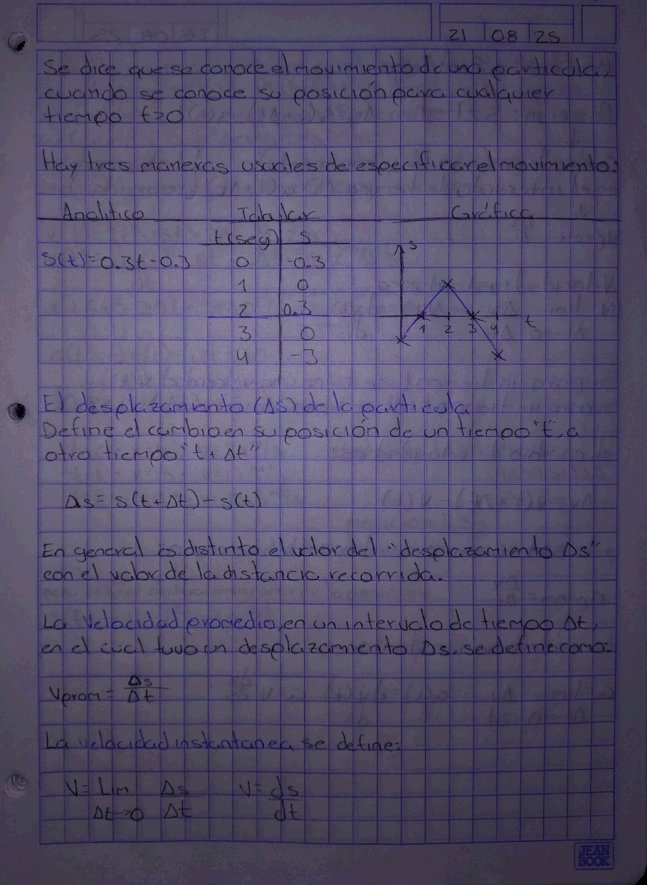 21 08 25
Se dice que se conoce el movimiento de una particula,
cuando se conoce su posición para cualquier
tiempo t>0
Hay tres maneras usuales de especificar el movimiento:
Analítico Tabular Gráfica
t(seg) s
s(t)=0.3t-0.3
0 -0.3
1 0
2 0.3
3 0
4 -3
s
1 2 3 4 t
El desplazamiento (Δs) de la particula
Define el cambio en su posición de un tiempo "t" a
otro tiempo "t+Δt"
Δs = s(t+Δt)-s(t)
En general es distinto el valor del "desplazamiento Δs"
con el valor de la distancia recorrida.
La velocidad promedio, en un intervalo de tiempo Δt,
en el cual tuvo un desplazamiento Δs, se define como:
Vprom = Δs/Δt
La velocidad instantanea se define:
V = Lim Δs/Δt V = ds/dt
Δt→0
JEAN
BOOK